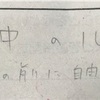 中 の
の 前 に 自由